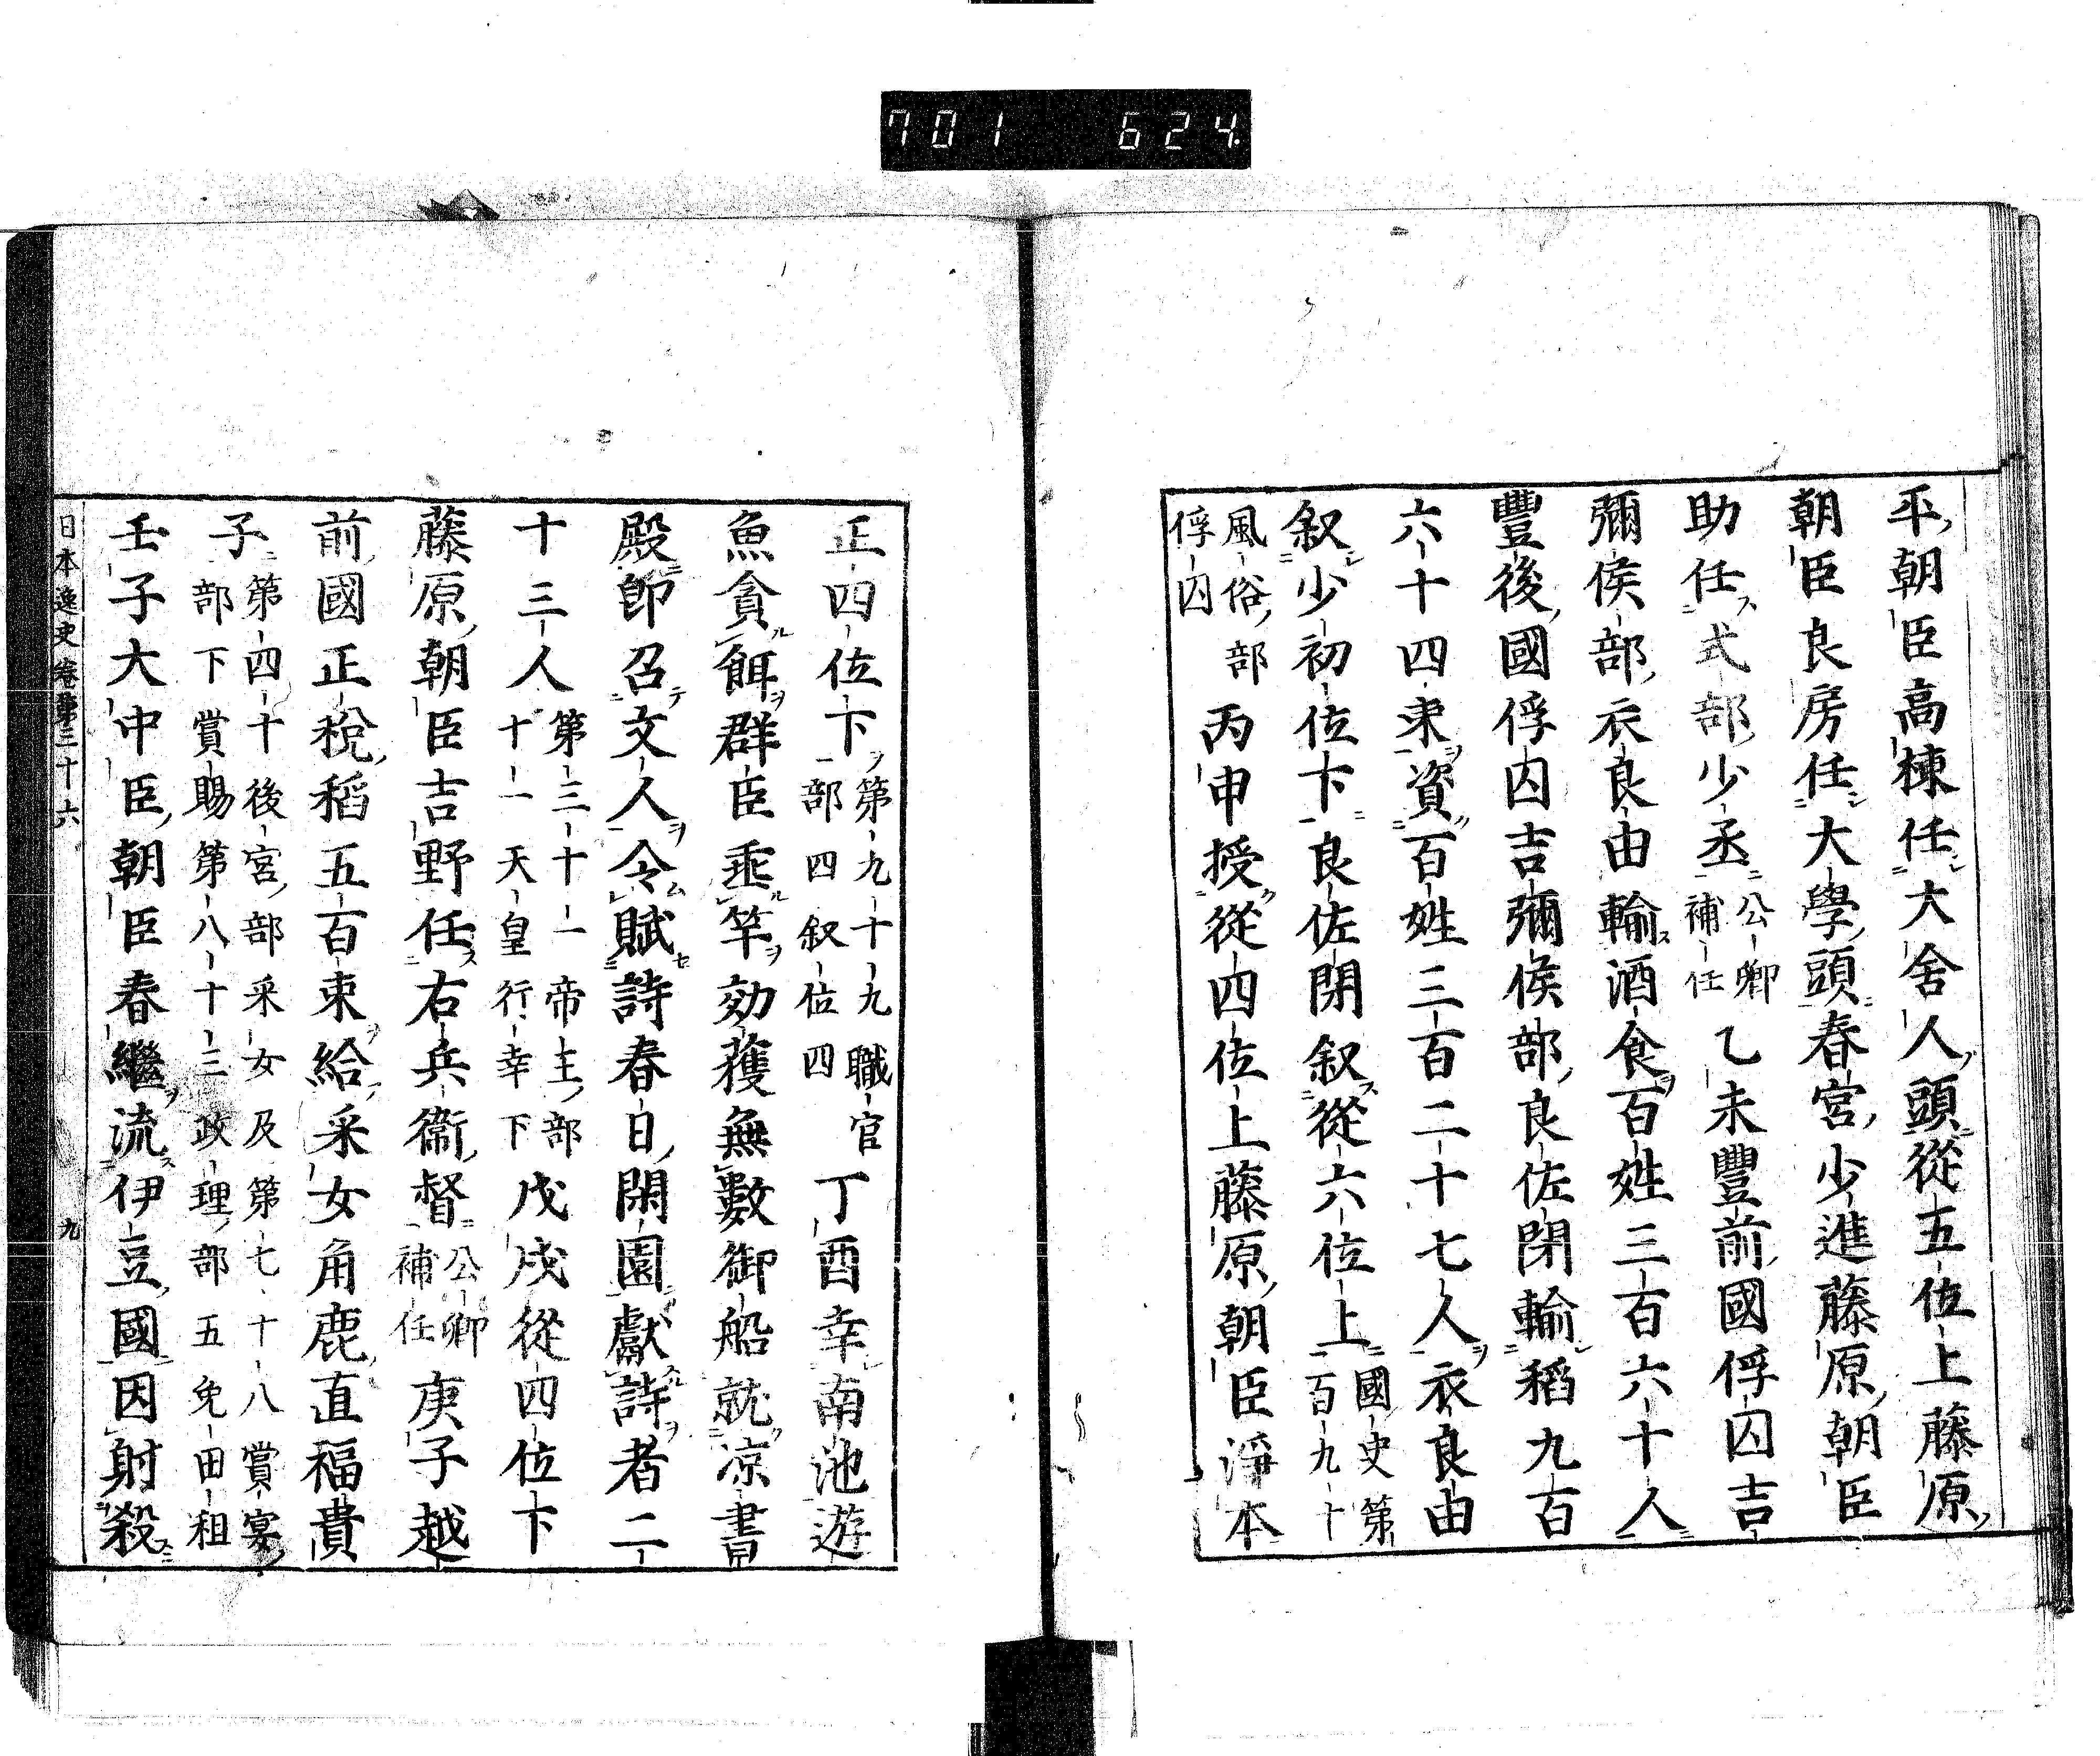 701 624
平朝臣高棟任大舍人頭從五位上藤原
朝臣良房任大學頭春宮少進藤原朝臣
助任式部少丞公卿補任乙未豐前國俘囚吉
彌侯部衣良由輸酒食百姓三百六十人
豐後國俘囚吉彌侯部良佐閉輸稻九百
六十四束資百姓三百二十七人衣良由
叙少初位下良佐閉叙從六位上國史第一百九十
風俗部俘囚丙申授從四位上藤原朝臣淨本
正四位下第九十九職官部四叙位四丁酉幸南池遊
魚貪餌群臣垂竿効獲無數御船就凉書
殿即召文人令賦詩春日閑園獻詩者二
十三人第三十一帝王部十一天皇行幸下戊戌從四位下
藤原朝臣吉野任右兵衞督公卿補任庚子越
前國正稅稻五百束給采女角鹿直福貴
子第四十後宮部采女及第七十八賞宴部下賞賜第八十三政理部五免田租
壬子大中臣朝臣春繼流伊豆國因射殺
日本逸史卷第三十六 九